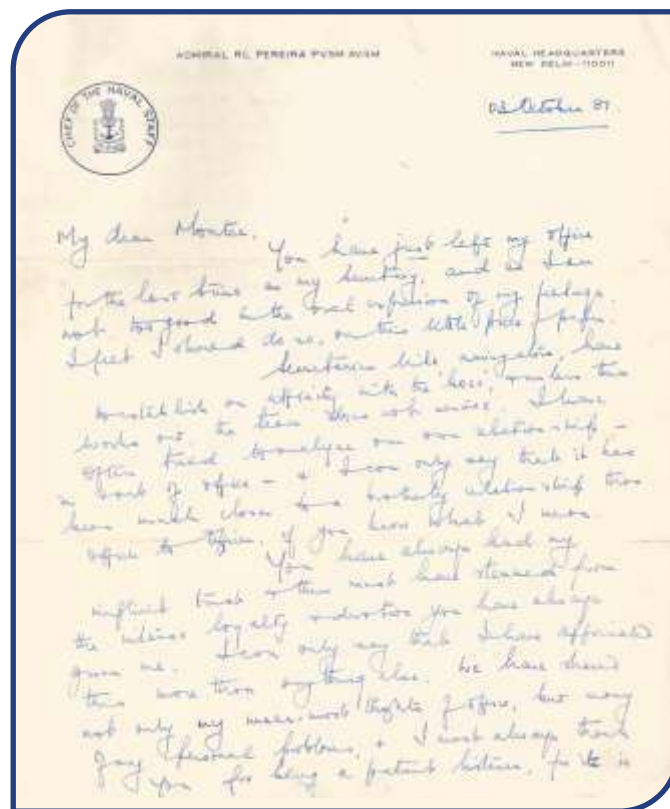 ADMIRAL RL PEREIRA PVSM AVSM
NAVAL HEADQUARTERS
NEW DELHI-110011
CHIEF OF THE NAVAL STAFF
03 October 81.
My dear Montee.
You have just left my office
for the last time as my Secretary, and as I am
not too good in the oral expression of my feelings.
I felt I should do so, on this little piece of paper.
Secretaries like navigators, have
to establish an affinity with the 'boss', unless this
works out, the team does not I have
often tried to analyse our own relationship -
in work & office - & I can only say that it has
been much closer to a brotherly relationship than
office to office, if you know what I mean.
You have always had my
implicit trust & this must have stemmed from
the intense loyalty you have always
given me. I can only say that I have appreciated
this more than anything else. We have shared
not only my thoughts of office, but many
of my personal problems, & I must always thank
you for being a patient listener, for it is